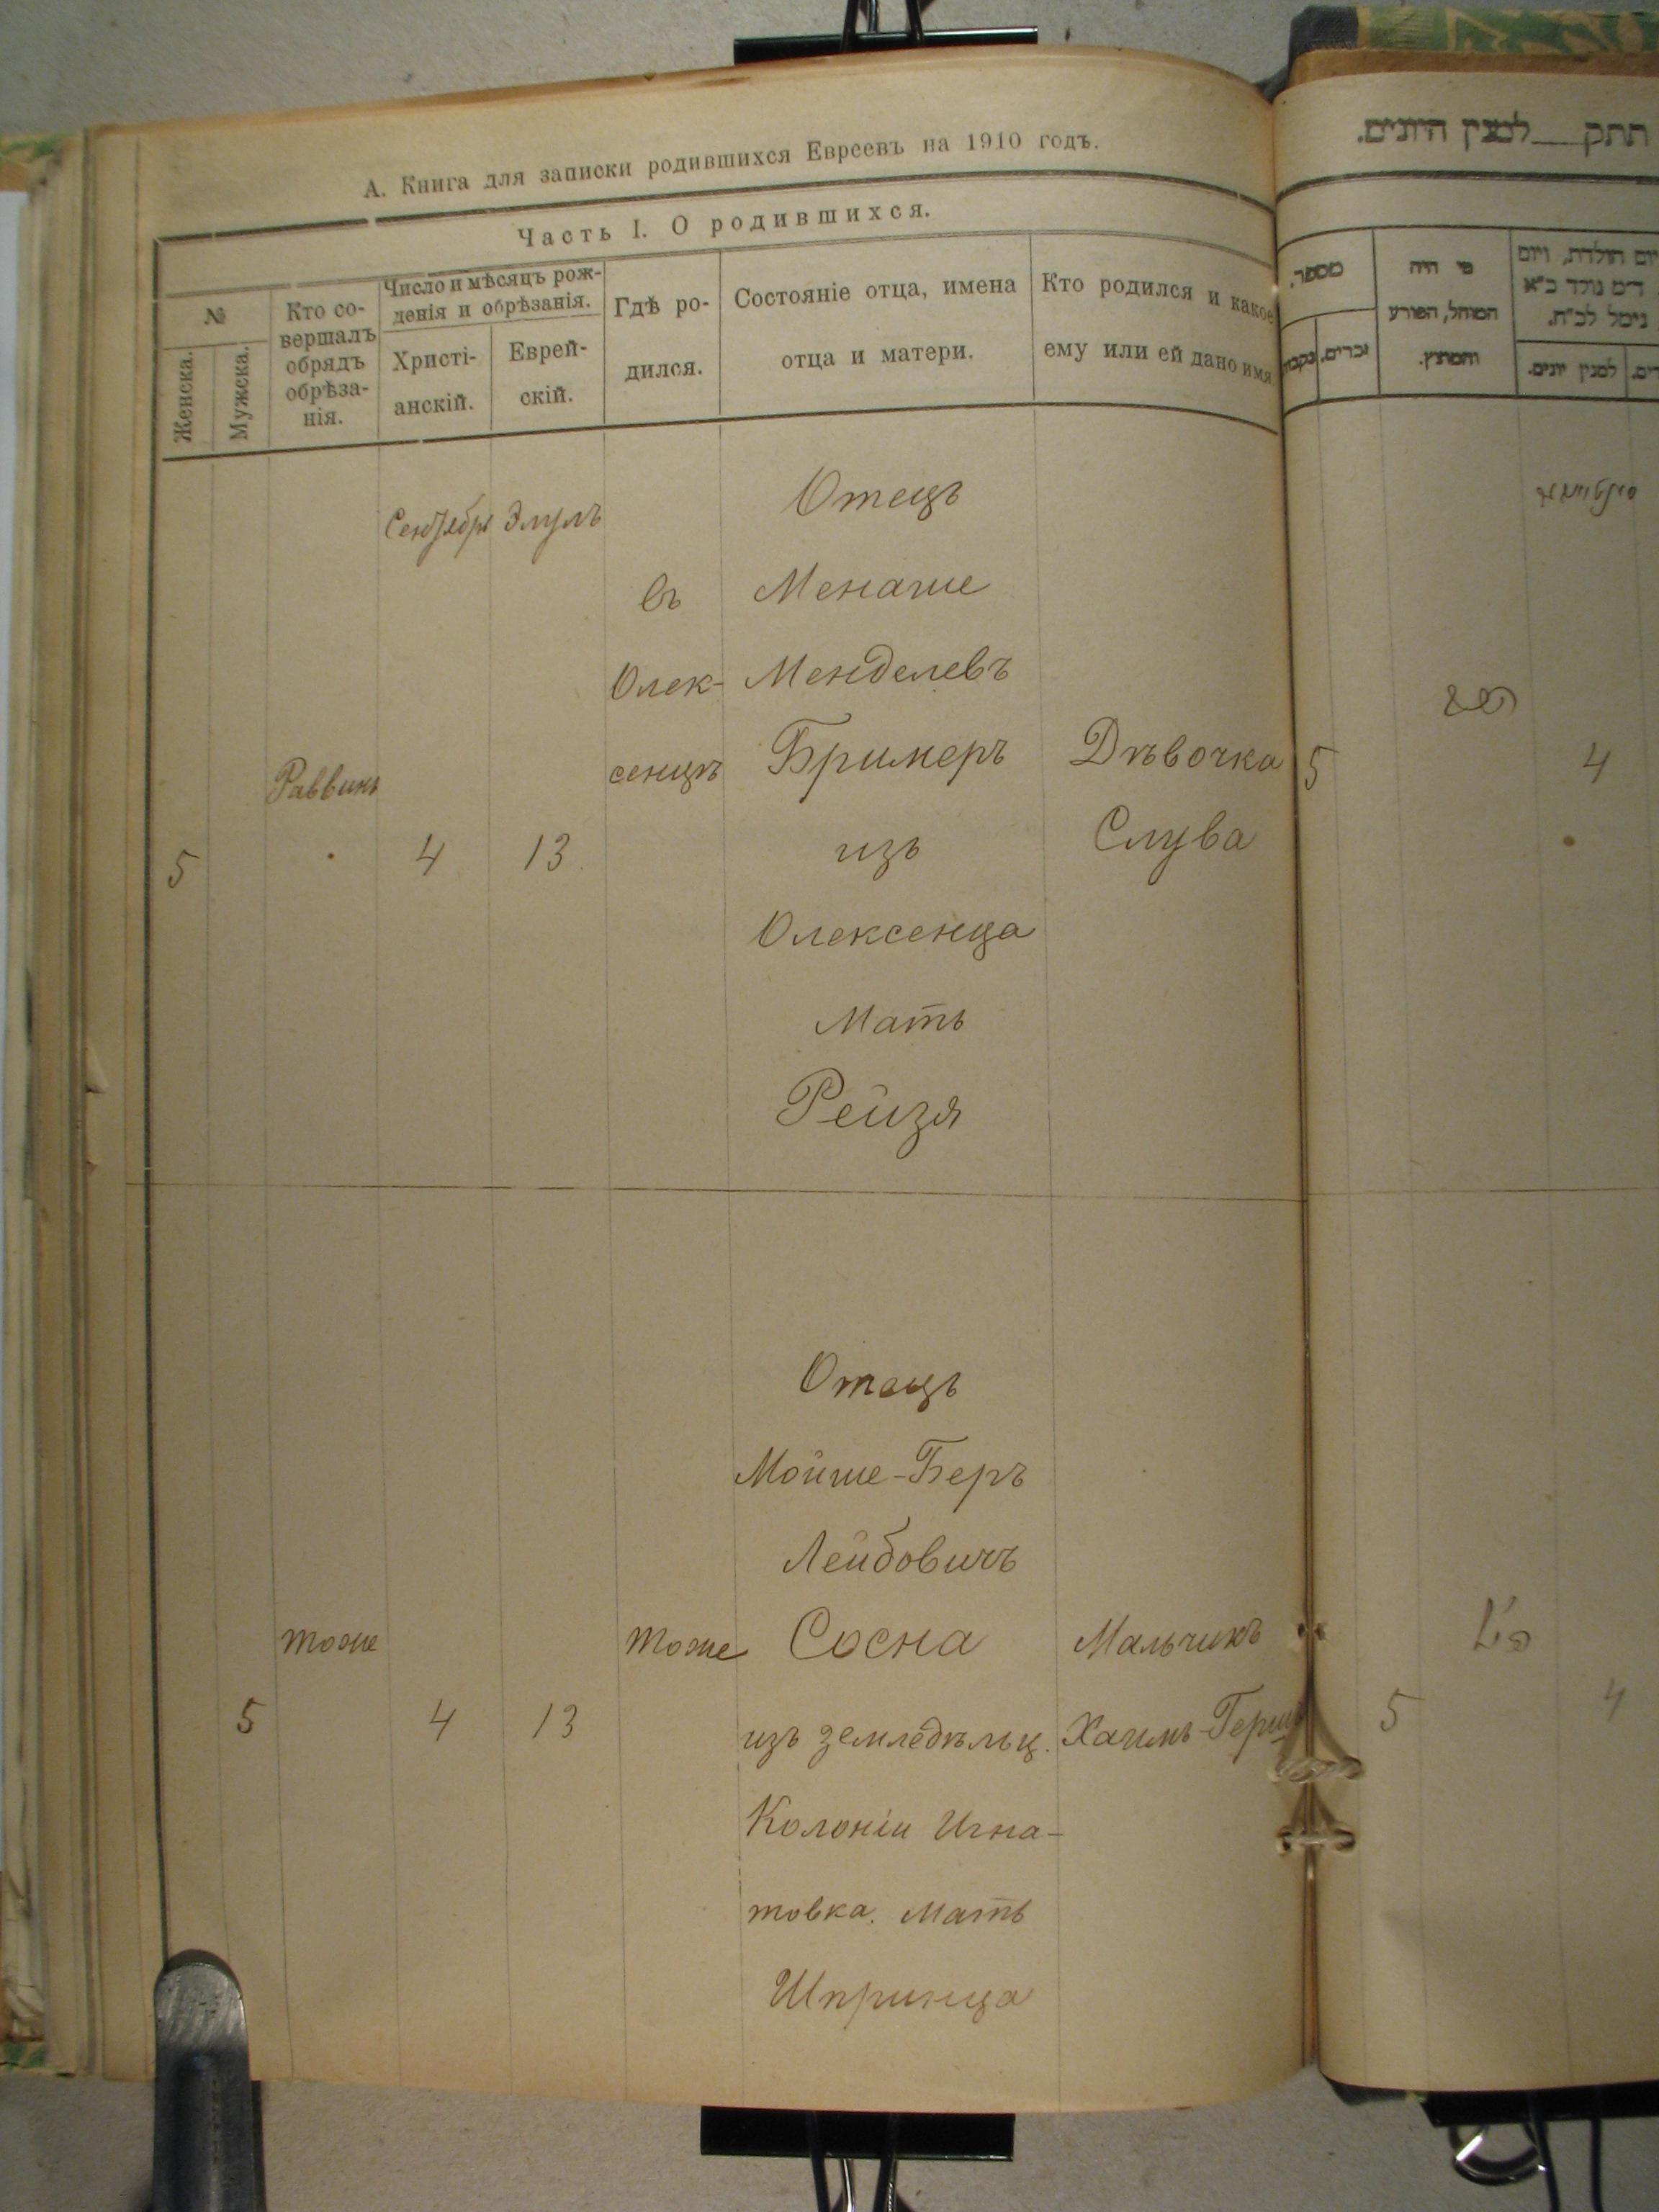 А. Книга для записки родившихся Евреевъ на 1910 годъ.
Часть I. О родившихся.
№
Женска.
Мужска.
Кто со-
вершалъ
обрядъ
обрѣза-
нія.
Число и мѣсяцъ рож-
денія и обрѣзанія.
Христі-
анскій.
Еврей-
скій.
Гдѣ ро-
дился.
Состояніе отца, имена
отца и матери.
Кто родился и какое
ему или ей дано имя
5
Раввинъ
Сентябрь
4
Элулъ
13
въ
Олек-
сенцѣ
Отецъ
Менаше
Менделевъ
Бримеръ
изъ
Олексенца
Мать
Рейзя
Дѣвочка
Слува
5
тоже
4
13
тоже
Отецъ
Мойше-Беръ
Лейбовичъ
Сосна
изъ земледѣльц.
Колоніи Игна-
товка. Мать
Шпринца
Мальчикъ
Хаимъ-Герш
תתק למנין היונים.
מספר.
זכרים.
מי היה
המוהל, הפורע
והמוצץ.
יום הולדת, ויום
נימל לכ"ח.
למנין יונים.
5
4
5
4